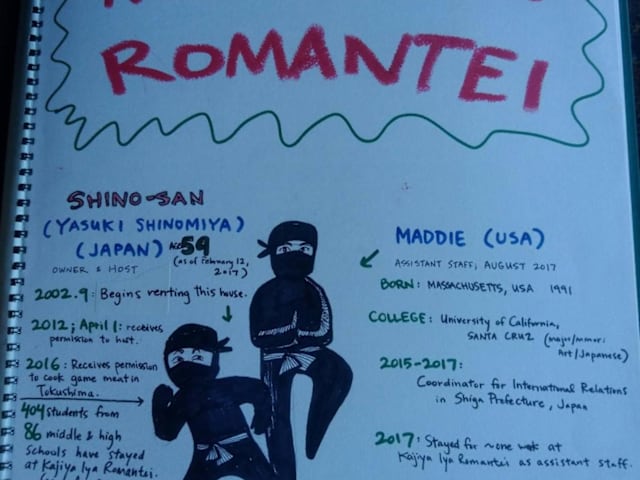 ROMANTEI
SHINO-SAN
(YASUKI SHINOMIYA)
(JAPAN) AGE 59
(as of February 12,
2017)
OWNER & HOST
2002.9: Begins renting this house.
2012; April 1: receives
permission to host.
2016: Receives permission
to cook game meat in
Tokushima.
404 students from
86 middle & high
schools have stayed
at Kajiya Iya Romantei.
MADDIE (USA)
ASSISTANT STAFF, AUGUST 2017
BORN: MASSACHUSETTS, USA 1991
COLLEGE: University of California,
SANTA CRUZ (major/minor:
Art/Japanese)
2015-2017:
Coordinator for International Relations
in Shiga Prefecture, Japan
2017: Stayed for ~one week at
Kajiya Iya Romantei as assistant staff.